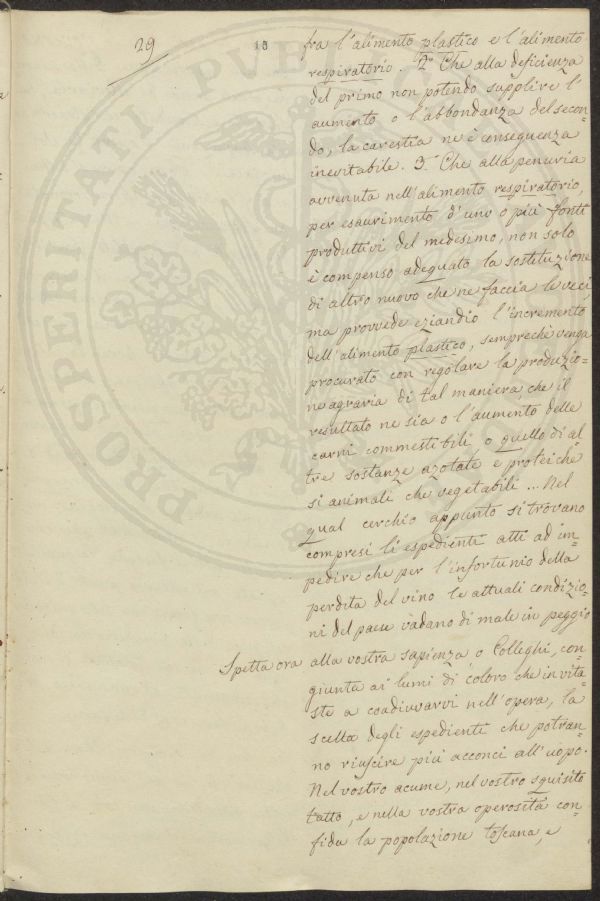 29
10
fra l'alimento plastico e l'alimento
respiratorio. 2º Che alla deficienza
del primo non potendo supplire l'
aumento o l'abbondanza del secon=
do, la carestia ne è conseguenza
inevitabile. 3º Che alla penuria
avvenuta nell'alimento respiratorio,
per esaurimento d'uno o più fonti
produttivi del medesimo, non solo
è compenso adeguato la sostituzione
di altro nuovo che ne faccia le veci,
ma provvede eziandio l'incremento
dell'alimento plastico, sempreché venga
procurato con regolare la produzio=
ne agraria di tal maniera che il
resultato ne sia o l'aumento delle
carni commestibili, o quello di al
tre sostanze azotate e proteiche
sì animali che vegetabili... Nel
qual cerchio appunto si trovano
compresi li espedienti atti ad im=
pedire che per l'infortunio della
perdita del vino le attuali condizio=
ni del paese vadano di male in peggio
Spetta ora alla vostra sapienza o Colleghi, con=
giunta ai lumi di coloro che invita=
ste a coadiuvarvi nell'opera, la
scelta degli espedienti che potran=
no riuscire più acconci all'uopo.
Nel vostro acume, nel vostro squisito
tatto, e nella vostra operosità con=
fida la popolazione toscana, e
PROSPERITATI PUBLICAE